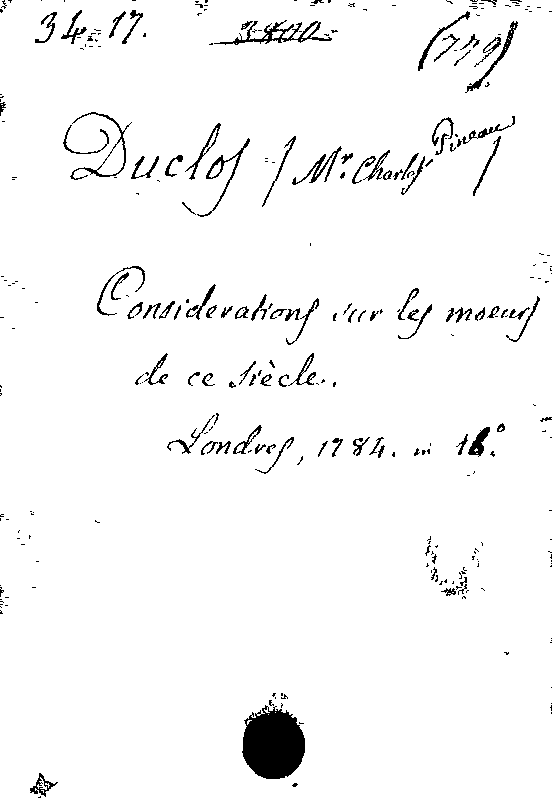 34.17. 3800 (779)
Duclos (Mr. Charles Pineau)
Considerations sur les moeurs
de ce siècle.
Londres, 1784. in 16.º